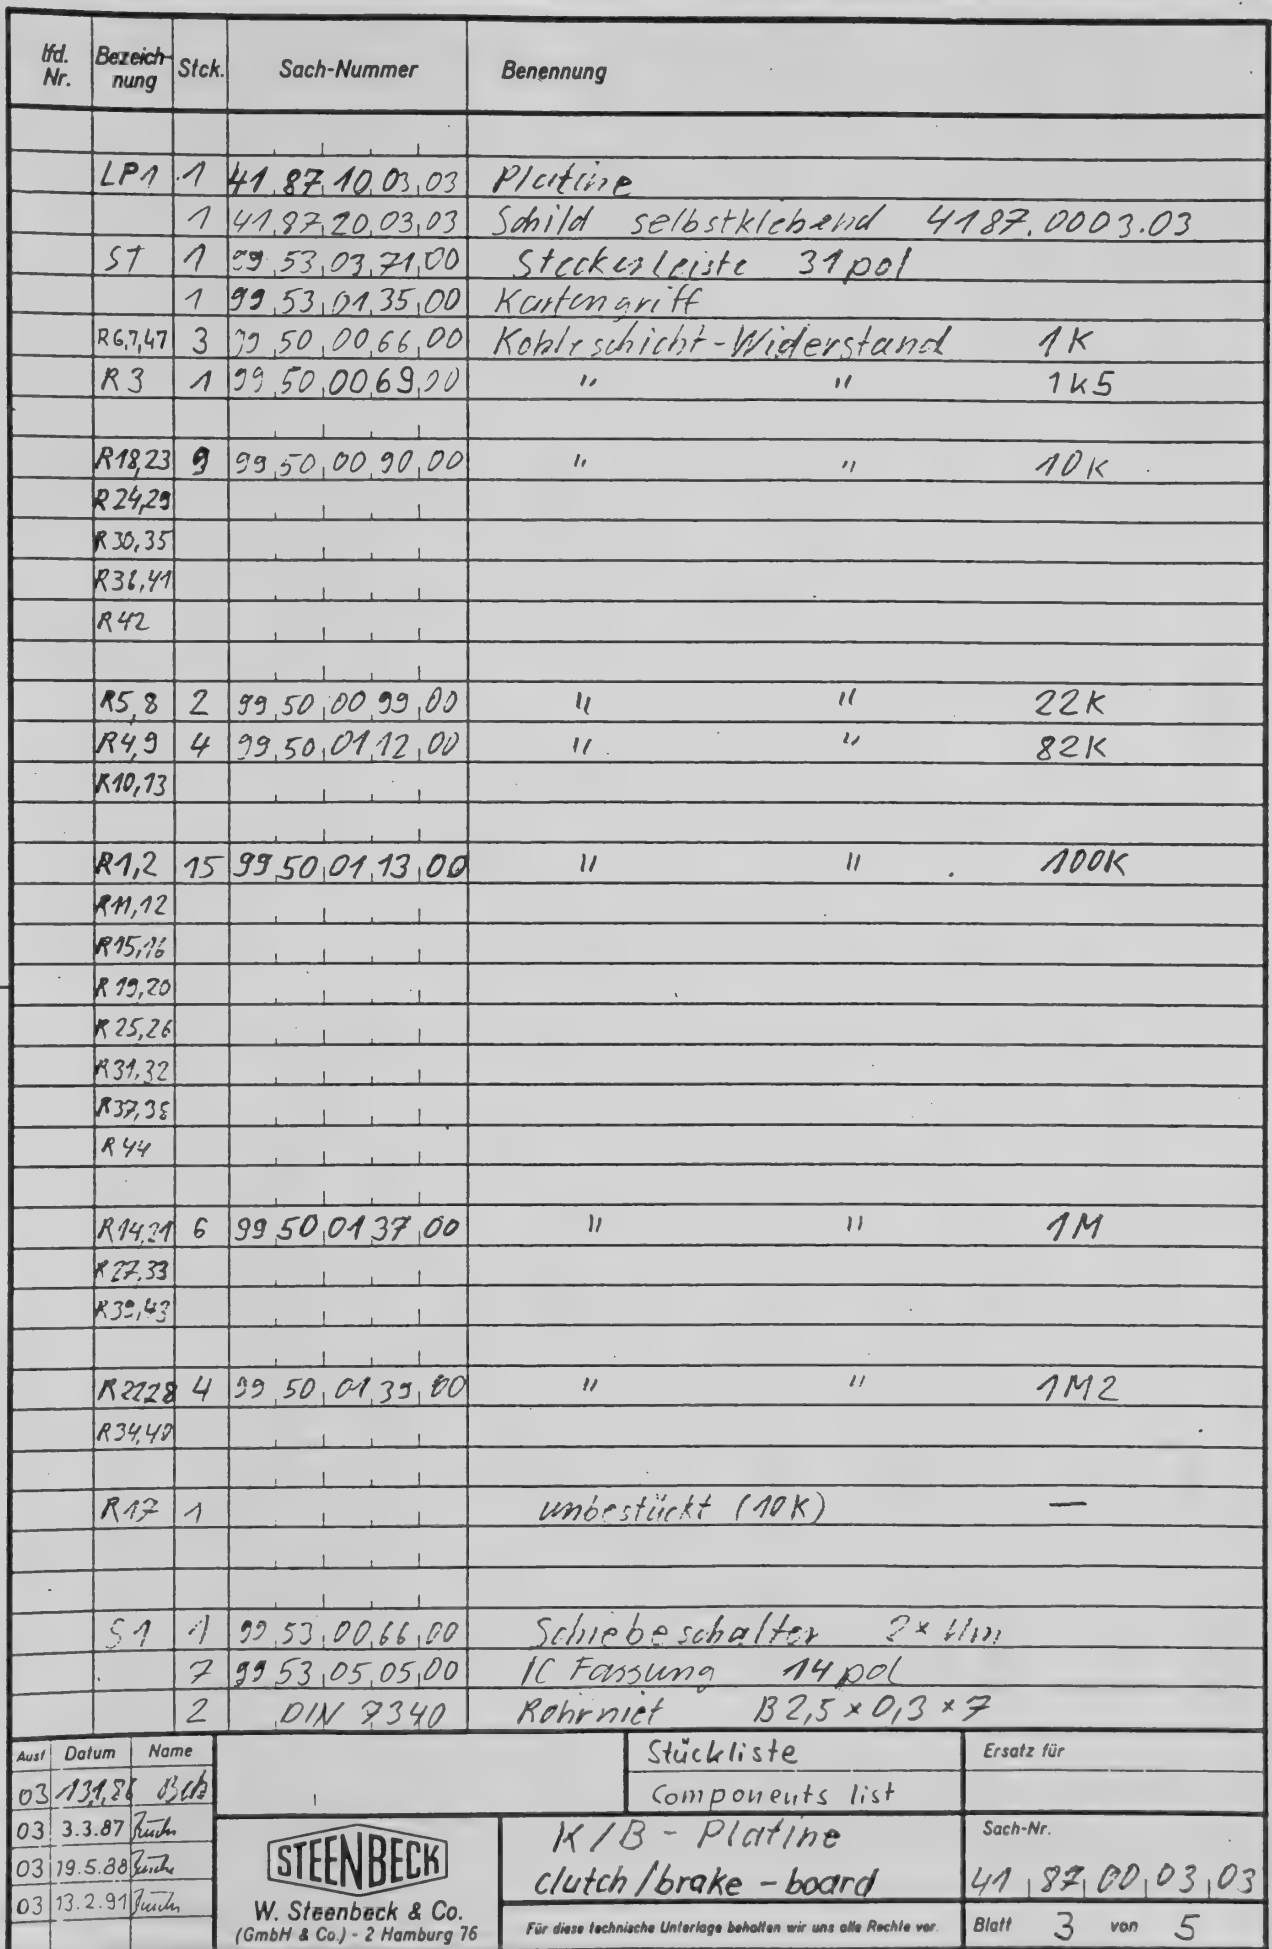 lfd. Nr. Bezeich- nung Stck. Sach-Nummer Benennung
LP1 1 41.87.10.03.03 Platine
1 41.87.20.03.03 Schild selbstklebend 4187.0003.03
ST 1 99.53.03.71.00 Steckerleiste 31pol
1 99.53.01.35.00 Kartengriff
R6,7,47 3 99.50.00.66.00 Kohleschicht-Widerstand 1K
R3 1 99.50.00.69.00 " " 1k5
R18,23 9 99.50.00.90.00 " " 10K
R24,29
R30,35
R36,41
R42
R5,8 2 99.50.00.99.00 " " 22K
R4,9 4 99.50.01.12.00 " " 82K
R10,13
R1,2 15 99.50.01.13.00 " " 100K
R11,12
R15,16
R19,20
R25,26
R31,32
R37,38
R44
R14,21 6 99.50.01.37.00 " " 1M
R27,33
R39,43
R22,28 4 99.50.01.39.00 " " 1M2
R34,40
R17 1 unbestückt (10K) —
S1 1 99.53.00.66.00 Schiebeschalter 2× Um
7 99.53.05.05.00 IC Fassung 14pol
2 DIN 7340 Rohrniet B2,5×0,3×7
Ausf Datum Name Stückliste Ersatz für
03 13.1.86 Components list
03 3.3.87 K/B - Platine Sach-Nr.
03 19.5.88 STEENBECK clutch/brake - board 41.87.00.03.03
03 13.2.91 W. Steenbeck & Co.
(GmbH & Co.) - 2 Hamburg 76 Für diese technische Unterlage behalten wir uns alle Rechte vor. Blatt 3 von 5